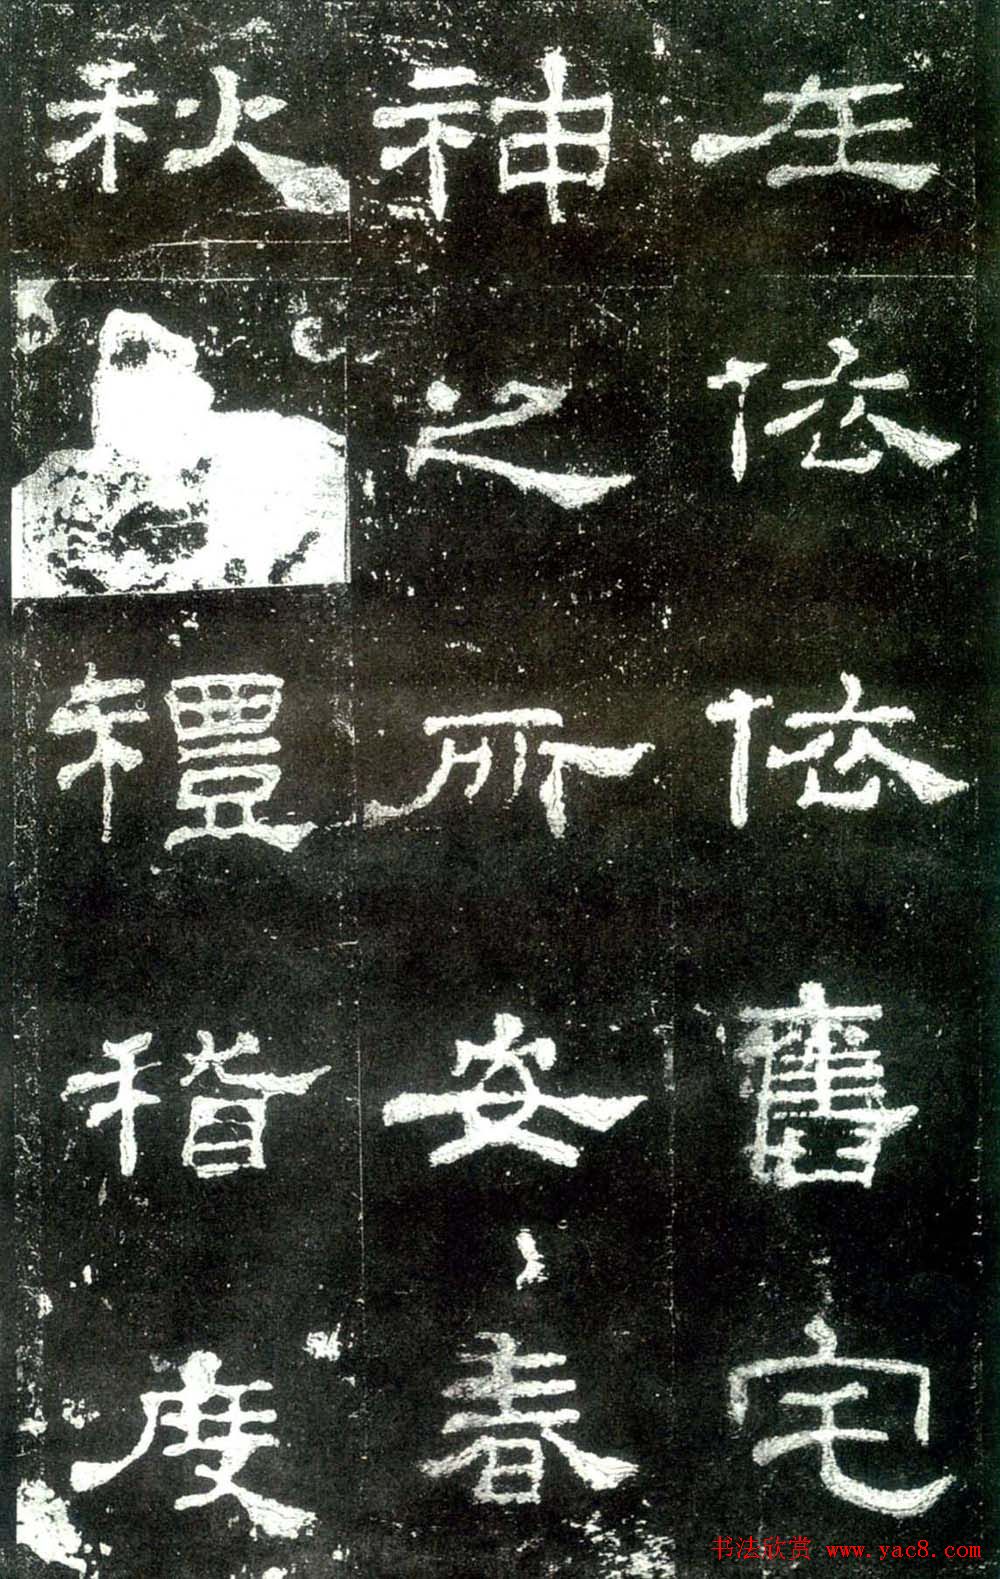 在依依舊宅
神之所安春
秋禮稽度
书法欣赏 www.yac8.com